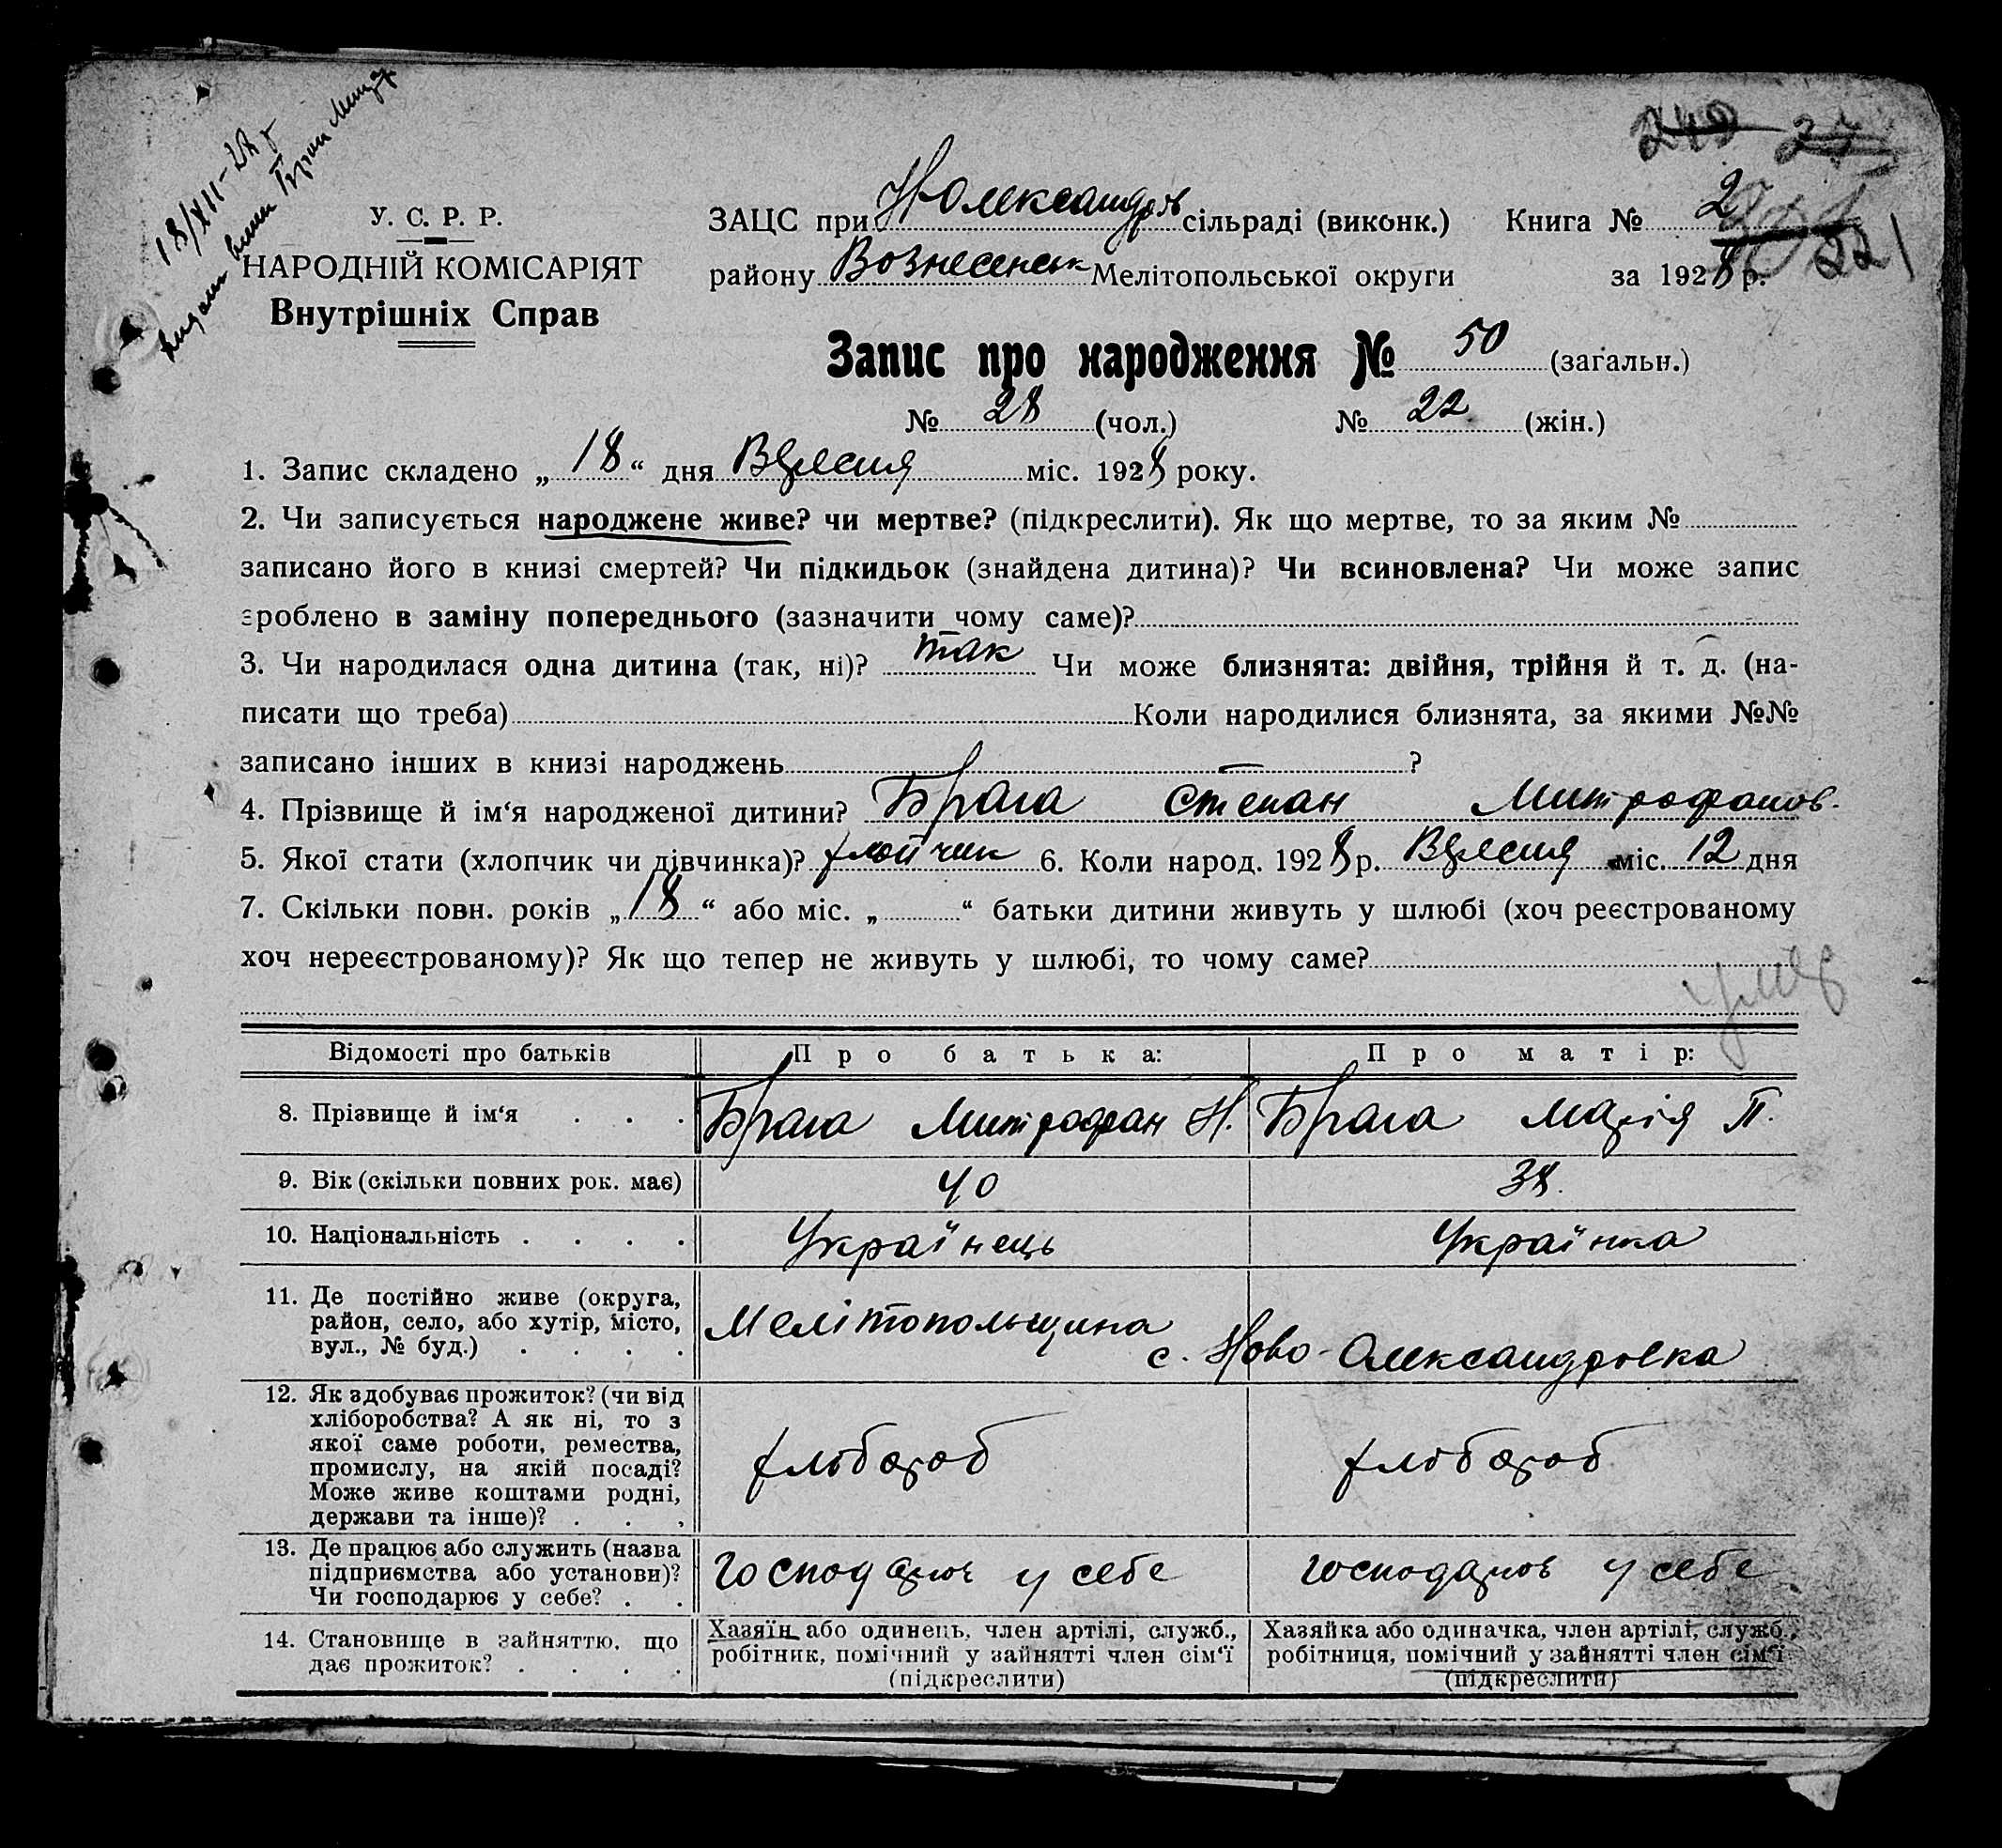 18/XII-28 р
240 27
У. С. Р. Р.
НАРОДНІЙ КОМІСАРІЯТ
Внутрішніх Справ
ЗАЦС при Н Олександрів сільраді (виконк.) Книга № 2
району Вознесенськ Мелітопольської округи за 1928 р. 221
Запис про народження № 50 (загальн.)
№ 28 (чол.) № 22 (жін.)
1. Запис складено „ 18 “ дня Вересня міс. 1928 року.
2. Чи записується народжене живе? чи мертве? (підкреслити). Як що мертве, то за яким №
записано його в книзі смертей? Чи підкидьок (знайдена дитина)? Чи всиновлена? Чи може запис
зроблено в заміну попереднього (зазначити чому саме)?
3. Чи народилася одна дитина (так, ні)? так Чи може близнята: двійня, трійня й т. д. (на-
писати що треба) Коли народилися близнята, за якими №№
записано інших в книзі народжень — ?
4. Прізвище й ім‘я народженої дитини? Брага Степан Митрофанов.
5. Якої стати (хлопчик чи дівчинка)? хлопчик 6. Коли народ. 1928 р. Вересня міс. 12 дня
7. Скільки повн. років „ 18 “ або міс. „ “ батьки дитини живуть у шлюбі (хоч реєстрованому
хоч нереєстрованому)? Як що тепер не живуть у шлюбі, то чому саме?
Відомості про батьків Про батька: Про матір:
8. Прізвище й ім‘я . . . Брага Митрофан Н. Брага Марія П.
9. Вік (скільки повних рок. має) 40 38.
10. Національність . . . . Українець Українка
11. Де постійно живе (округа,
район, село, або хутір, місто,
вул., № буд.) . . . .
Мелітопольщина с. Ново-Олександровка
12. Як здобуває прожиток? (чи від
хліборобства? А як ні, то з
якої саме роботи, ремества,
промислу, на якій посаді?
Може живе коштами родні,
держави та інше)? . . .
хлібороб хлібороб
13. Де працює або служить (назва
підприємства або установи)?
Чи господарює у себе? . .
господарює у себе господарює у себе
14. Становище в зайняттю, що
дає прожиток? . . . .
Хазяїн або одинець, член артілі, служб.,
робітник, помічний у зайнятті член сім‘ї
(підкреслити)
Хазяйка або одиначка, член артілі, служб.,
робітниця, помічний у зайнятті член сім‘ї
(підкреслити)